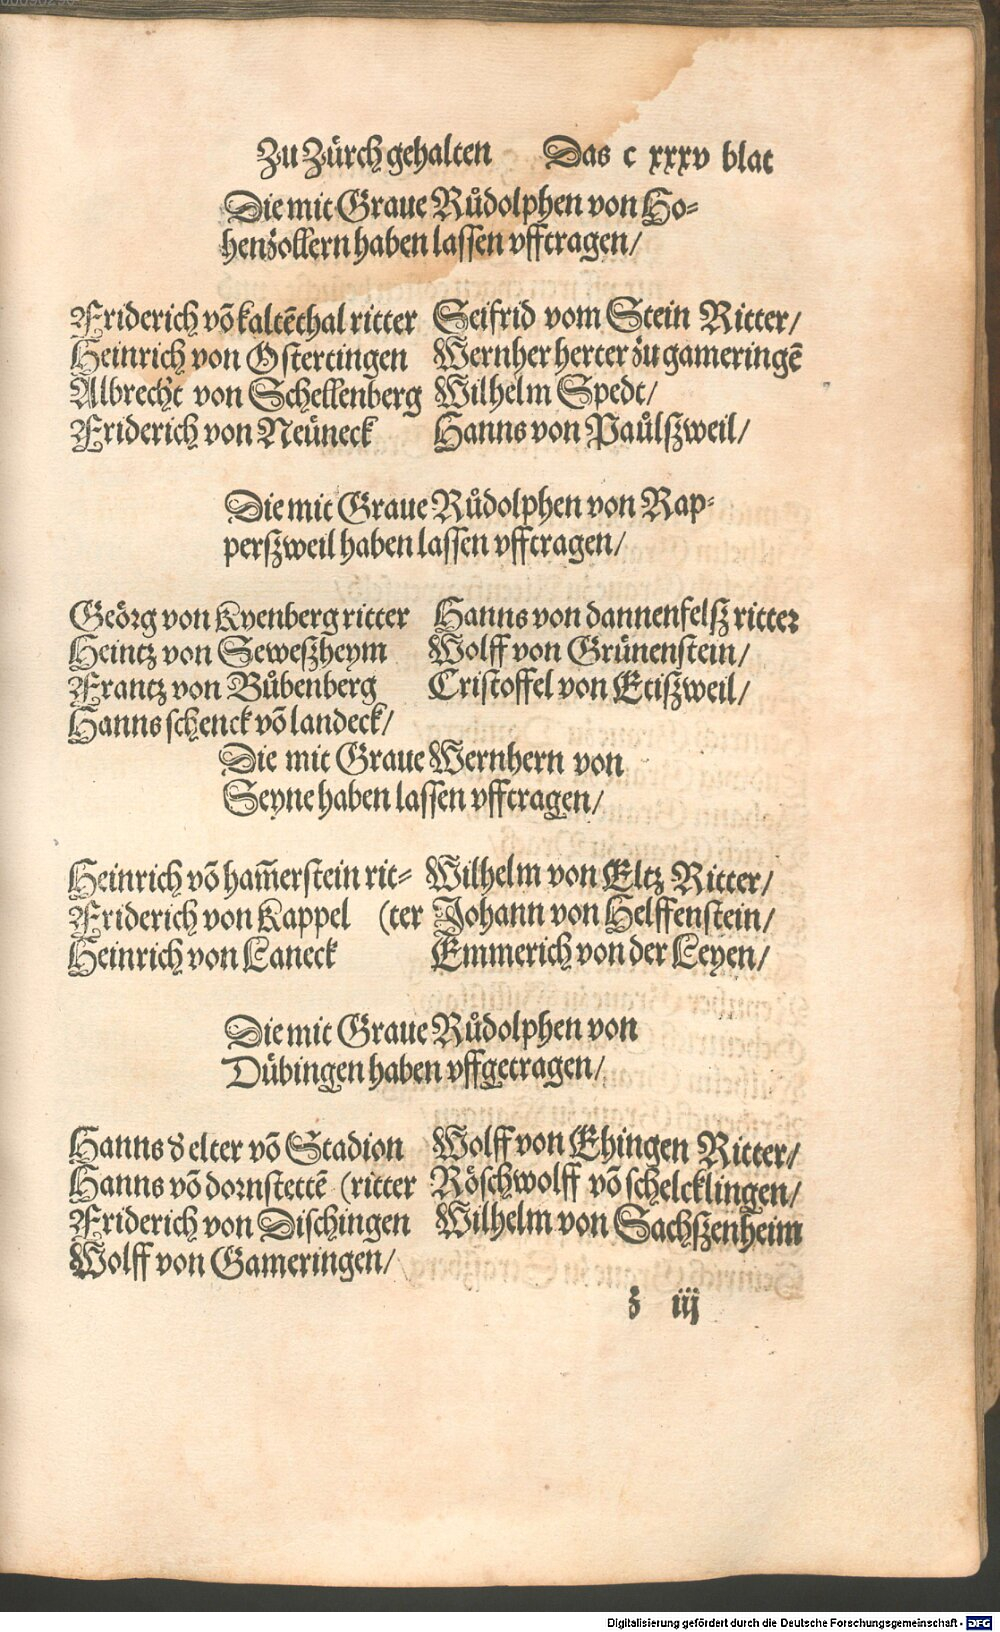 Zu Zürch gehalten Das c xxxv blat
Die mit Graue Růdolphen von Ho-
henzollern haben lassen vfftragen/
Friderich võ kaltẽthal ritter
Heinrich von Ostertingen
Albrecht von Schellenberg
Friderich von Neüneck
Seifrid vom Stein Ritter/
Wernher herter zu gameringẽ
Wilhelm Spedt/
Hanns von Paůlßweil/
Die mit Graue Růdolphen von Rap-
perßweil haben lassen vfftragen/
Geörg von Kyenberg ritter
Heintz von Seweßheym
Frantz von Bůbenberg
Hanns schenck võ landeck/
Hanns von dannenfelß ritter
Wolff von Grünenstein/
Cristoffel von Etißweil/
Die mit Graue Wernhern von
Seyne haben lassen vfftragen/
Heinrich võ ham̃erstein rit-
Friderich von Kappel (ter
Heinrich von Laneck
Wilhelm von Eltz Ritter/
Johann von Helffenstein/
Emmerich von der Leyen/
Die mit Graue Růdolphen von
Dübingen haben vffgetragen/
Hanns d elter võ Stadion
Hanns võ dornstettẽ (ritter
Friderich von Dischingen
Wolff von Gameringen/
Wolff von Ehingen Ritter/
Röschwolff võ schelcklingen/
Wilhelm von Sachßenheim
z iij
Digitalisierung gefördert durch die Deutsche Forschungsgemeinschaft - DFG